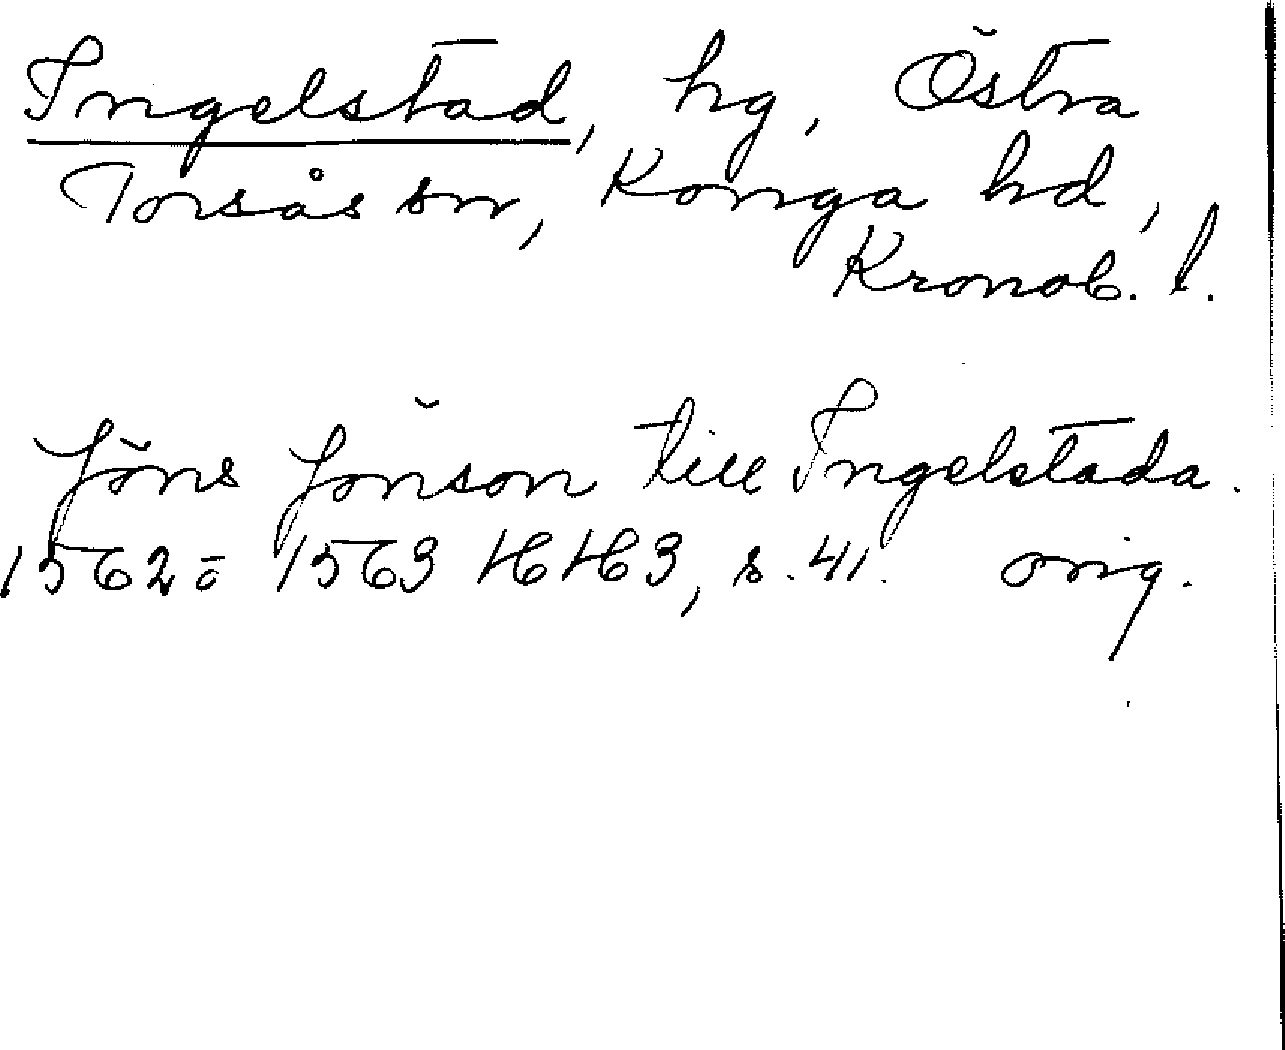 Ingelstad, hg, Östra
Torsås sn, Konga hd,
Kronob. l.
Jöns Jönson till Ingelstada.
1562 ö 1563 HH3, s. 41. orig.